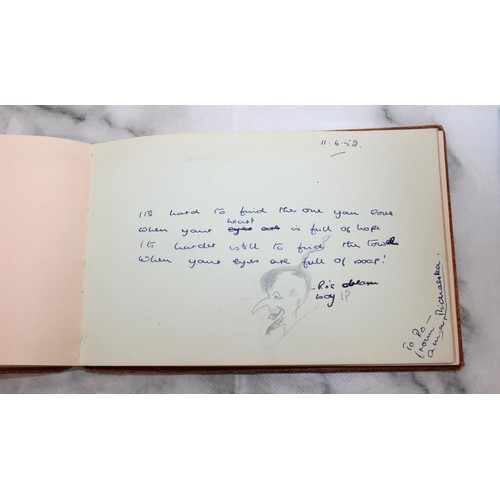 11-6-52.
It's hard to find the one you love
When your eyes are heart is full of hope
It's harder still to find the towel
When your eyes are full of soap!
dream
boy !?
To Ro -
from